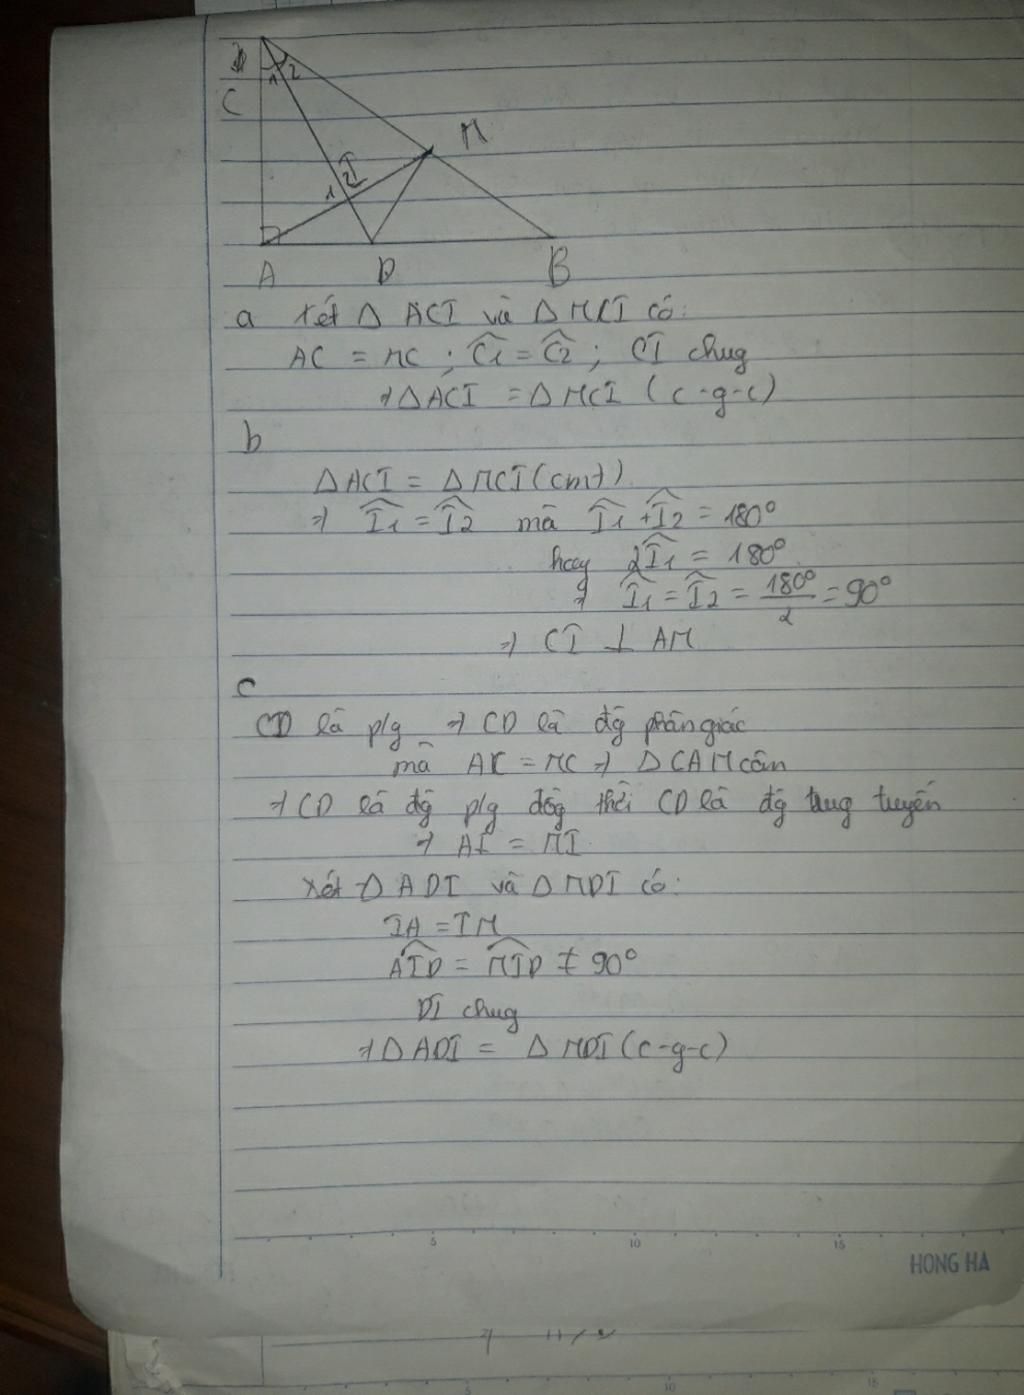 C
1 2
M
1 2 I
A D B
a xét Δ ACI và Δ MCI có:
AC = MC ; Ĉ1 = Ĉ2 ; CI chug
⇒ Δ ACI = Δ MCI (c-g-c)
b
Δ ACI = Δ MCI (cmt)
⇒ Î1 = Î2 mà Î1 + Î2 = 180°
hay 2Î1 = 180°
⇒ Î1 = Î2 = 180°/2 = 90°
⇒ CI ⊥ AM
c
CD là p/g ⇒ CD là đg phân giác
mà AC = MC ⇒ Δ CAM cân
⇒ CD là đg p/g đồg thời CD là đg trug tuyến
⇒ AI = MI
xét Δ ADI và Δ MDI có:
IA = IM
AID = MID = 90°
DI chug
⇒ Δ ADI = Δ MDI (c-g-c)
5 10 15
HONG HA